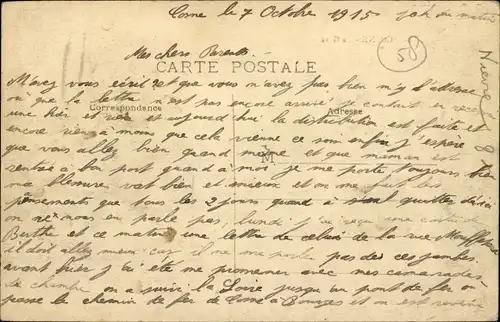 Cosne le 7 Octobre 1915 10h du matin
58
Nievre
Mes chers Parents
CARTE POSTALE
M'avez vous écrit? et que vous n'avez pas bien mis l'adresse
ou que la lettre n'est pas encore arrivé je comptait en recevoir
Correspondance
Adresse
une hier et rien et aujourd'hui la distribution est faite et
encore rien à moins que cela vienne ce soir enfin j'espère
que vous allez bien quand même et que maman est
M
rentrée à bon port quand à moi je me porte toujours bien
ma blessure vat bien et mieux et on me fait les
pensements que tous les 2 jours quand à quitter d'ici
on ne nous en parle pas, lundi j'ai reçu une carte de
Berthe et ce matin une lettre de celui de la rue Mouffetard
il doit allez mieux car il ne me parle pas de ces jambes.
avant hier j'ai été me promener avec mes camarades
de chambre on a suivi la Loire jusqu'au pont de fer où
passe le chemin de fer de Cosne à Bourges et on est revenu